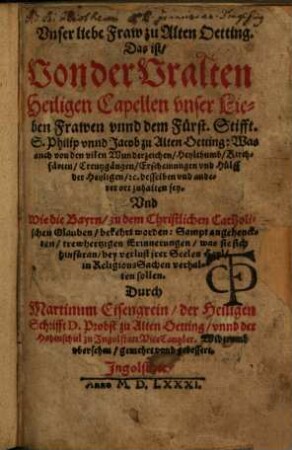 Vnser liebe Fraw zu Alten Oetting.
Das ist/
Von der Vralten
Heiligen Capellen vnser Lie-
ben Frawen vnnd dem Fürst. Stifft.
S. Philip vnnd Jacob zu Alten Oetting: Was
auch von den vilen Wunderzeichen/ Heylthumb/ Kirch-
färten/ Creutzgängen/ Erscheinungen vnd Hülff
der Heyligen/ ꝛc. desselben vnd ande-
rer ort zuhalten sey.
Vnd
Wie die Bayrn/ zu dem Christlichen Catholi-
schen Glauben/ bekehrt worden: Sampt angehenck-
ten/ trewhertzigen Erinnerungen/ was sie sich
hinfüran/ bey verlust jrer Seelen Heyl/
in Religions Sachen verhal-
ten sollen.
Durch
Martinum Eisengrein/ der Heiligen
Schrifft D. Probst zu Alten Oetting/ vnnd der
Hohenschul zu Ingolstatt ViceCantzler. Widerumb
vbersehen/ gemehrt vnnd gebessert.
Ingolstatt/
Anno M. D. LXXXI.